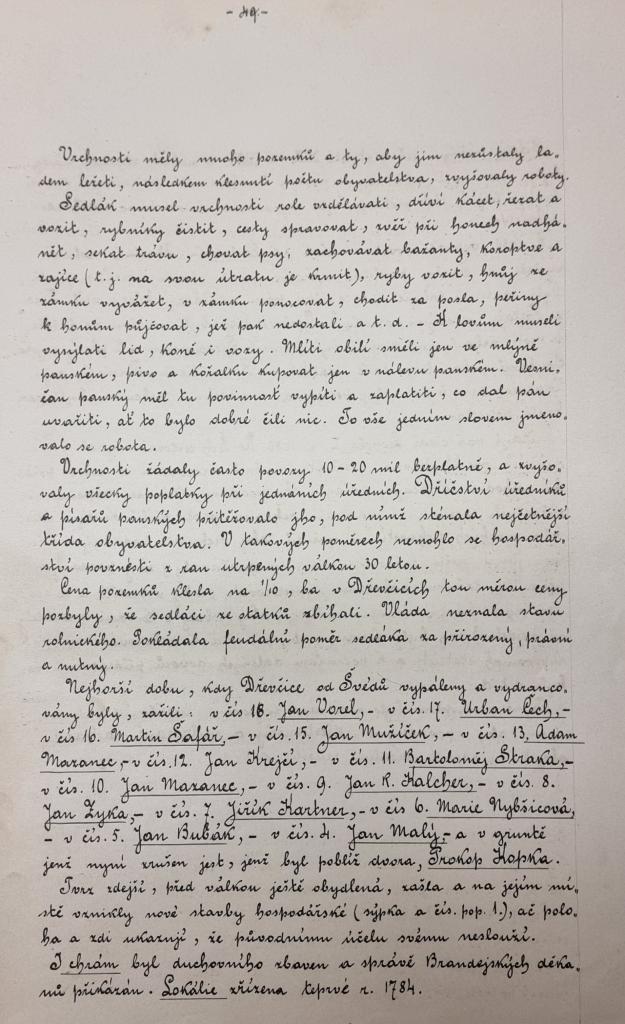 - 49. -
Vrchnosti měly mnoho pozemků a ty, aby jim nezůstaly la-
dem ležeti, následkem klesnutí počtu obyvatelstva, zvyšovaly roboty.
Sedlák musel vrchnosti role vzdělávati, dříví kácet, řezat a
vozit, rybníky čistit, cesty spravovat, zvěř při honech nadhá-
nět, sekat trávu, chovat psy, zachovávat bažanty, koroptve a
zajíce (t. j. na svou útratu je krmit), ryby vozit, hnůj ze
zámku vyvážet, v zámku ponocovat, chodit za posla, peřiny
k honům půjčovat, jež pak nedostali a t. d. - K lovům museli
vysýlati lid, koně i vozy. Mlíti obilí směli jen ve mlýně
panském, pivo a kořalku kupovat jen v nálevu panském. Vesni-
čan panský měl tu povinnost vypíti a zaplatiti, co dal pán
uvařiti, ať to bylo dobré čili nic. To vše jedním slovem jmeno-
valo se robota.
Vrchnosti žádaly často povozy 10-20 mil bezplatně, a zvyšo-
valy všecky poplatky při jednáních úředních. Dříčství úředníků
a písařů panských přitěžovalo jho, pod nímž sténala nejčetnější
třída obyvatelstva. V takových poměrech nemohlo se hospodář-
ství povznésti z ran utrpených válkou 30 letou.
Cena pozemků klesla na 1/10, ba v Dřevčicích tou měrou ceny
pozbyly, že sedláci ze statků zbíhali. Vláda neznala stavu
rolnického. Pokládala feudální poměr sedláka za přirozený, právní
a nutný.
Nejhorší dobu, kdy Dřevčice od Švédů vypáleny a vydranco-
vány byly, zažili: v čís 18. Jan Vorel, - v čís. 17. Urban Čech, -
v čís 16. Martin Šafář, - v čís. 15. Jan Mužíček, - v čís. 13, Adam
Mazanec, - v čís. 12. Jan Krejčí, - v čís. 11. Bartoloměj Straka, -
v čís. 10. Jan Mazanec, - v čís. 9. Jan R. Kalcher, - v čís. 8.
Jan Zyka, - v čís. 7. Jiřík Kartner, - v čís 6. Marie Nybšicová,
- v čís. 5. Jan Bubák, - v čís. 4. Jan Malý, - a v gruntě
jenž nyní zrušen jest, jenž byl poblíž dvora, Prokop Kopka.
Tvrz zdejší, před válkou ještě obydlená, zašla a na jejím mí-
stě vznikly nové stavby hospodářské (sýpka a čís. pop. 1.), ač polo-
ha a zdi ukazují, že původnímu účelu svému neslouží.
I chrám byl duchovního zbaven a správě Brandejských děka-
nů přikázán. Lokálie zřízena teprvé r. 1784.